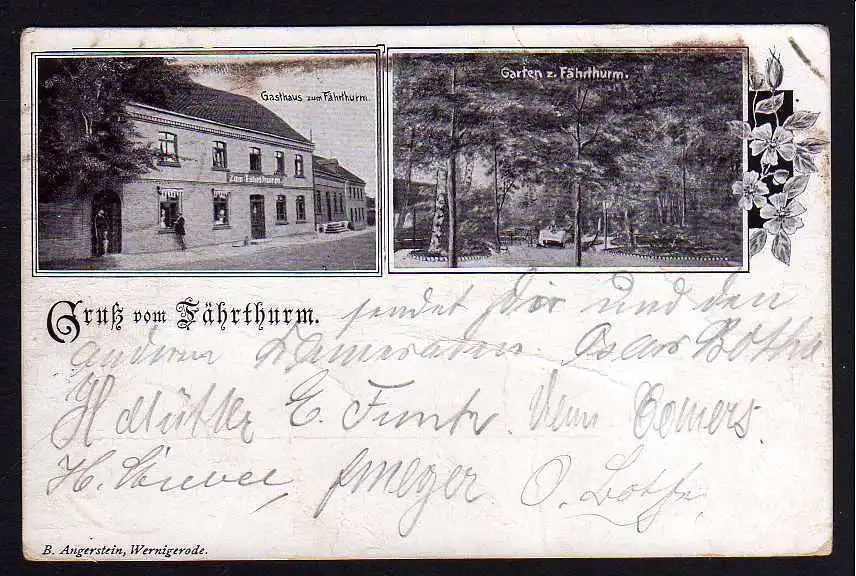 Gasthaus zum Fährthurm.
Garten z. Fährthurm.
Zum Fährthurm
Gruß vom Fährthurm. sendet Dir und den
anderen Kameraden. Oscar Bothe
H Müller E. Funtz. Conters.
H. Stuvel, F Meyer O. Bothe,
B. Angerstein, Wernigerode.